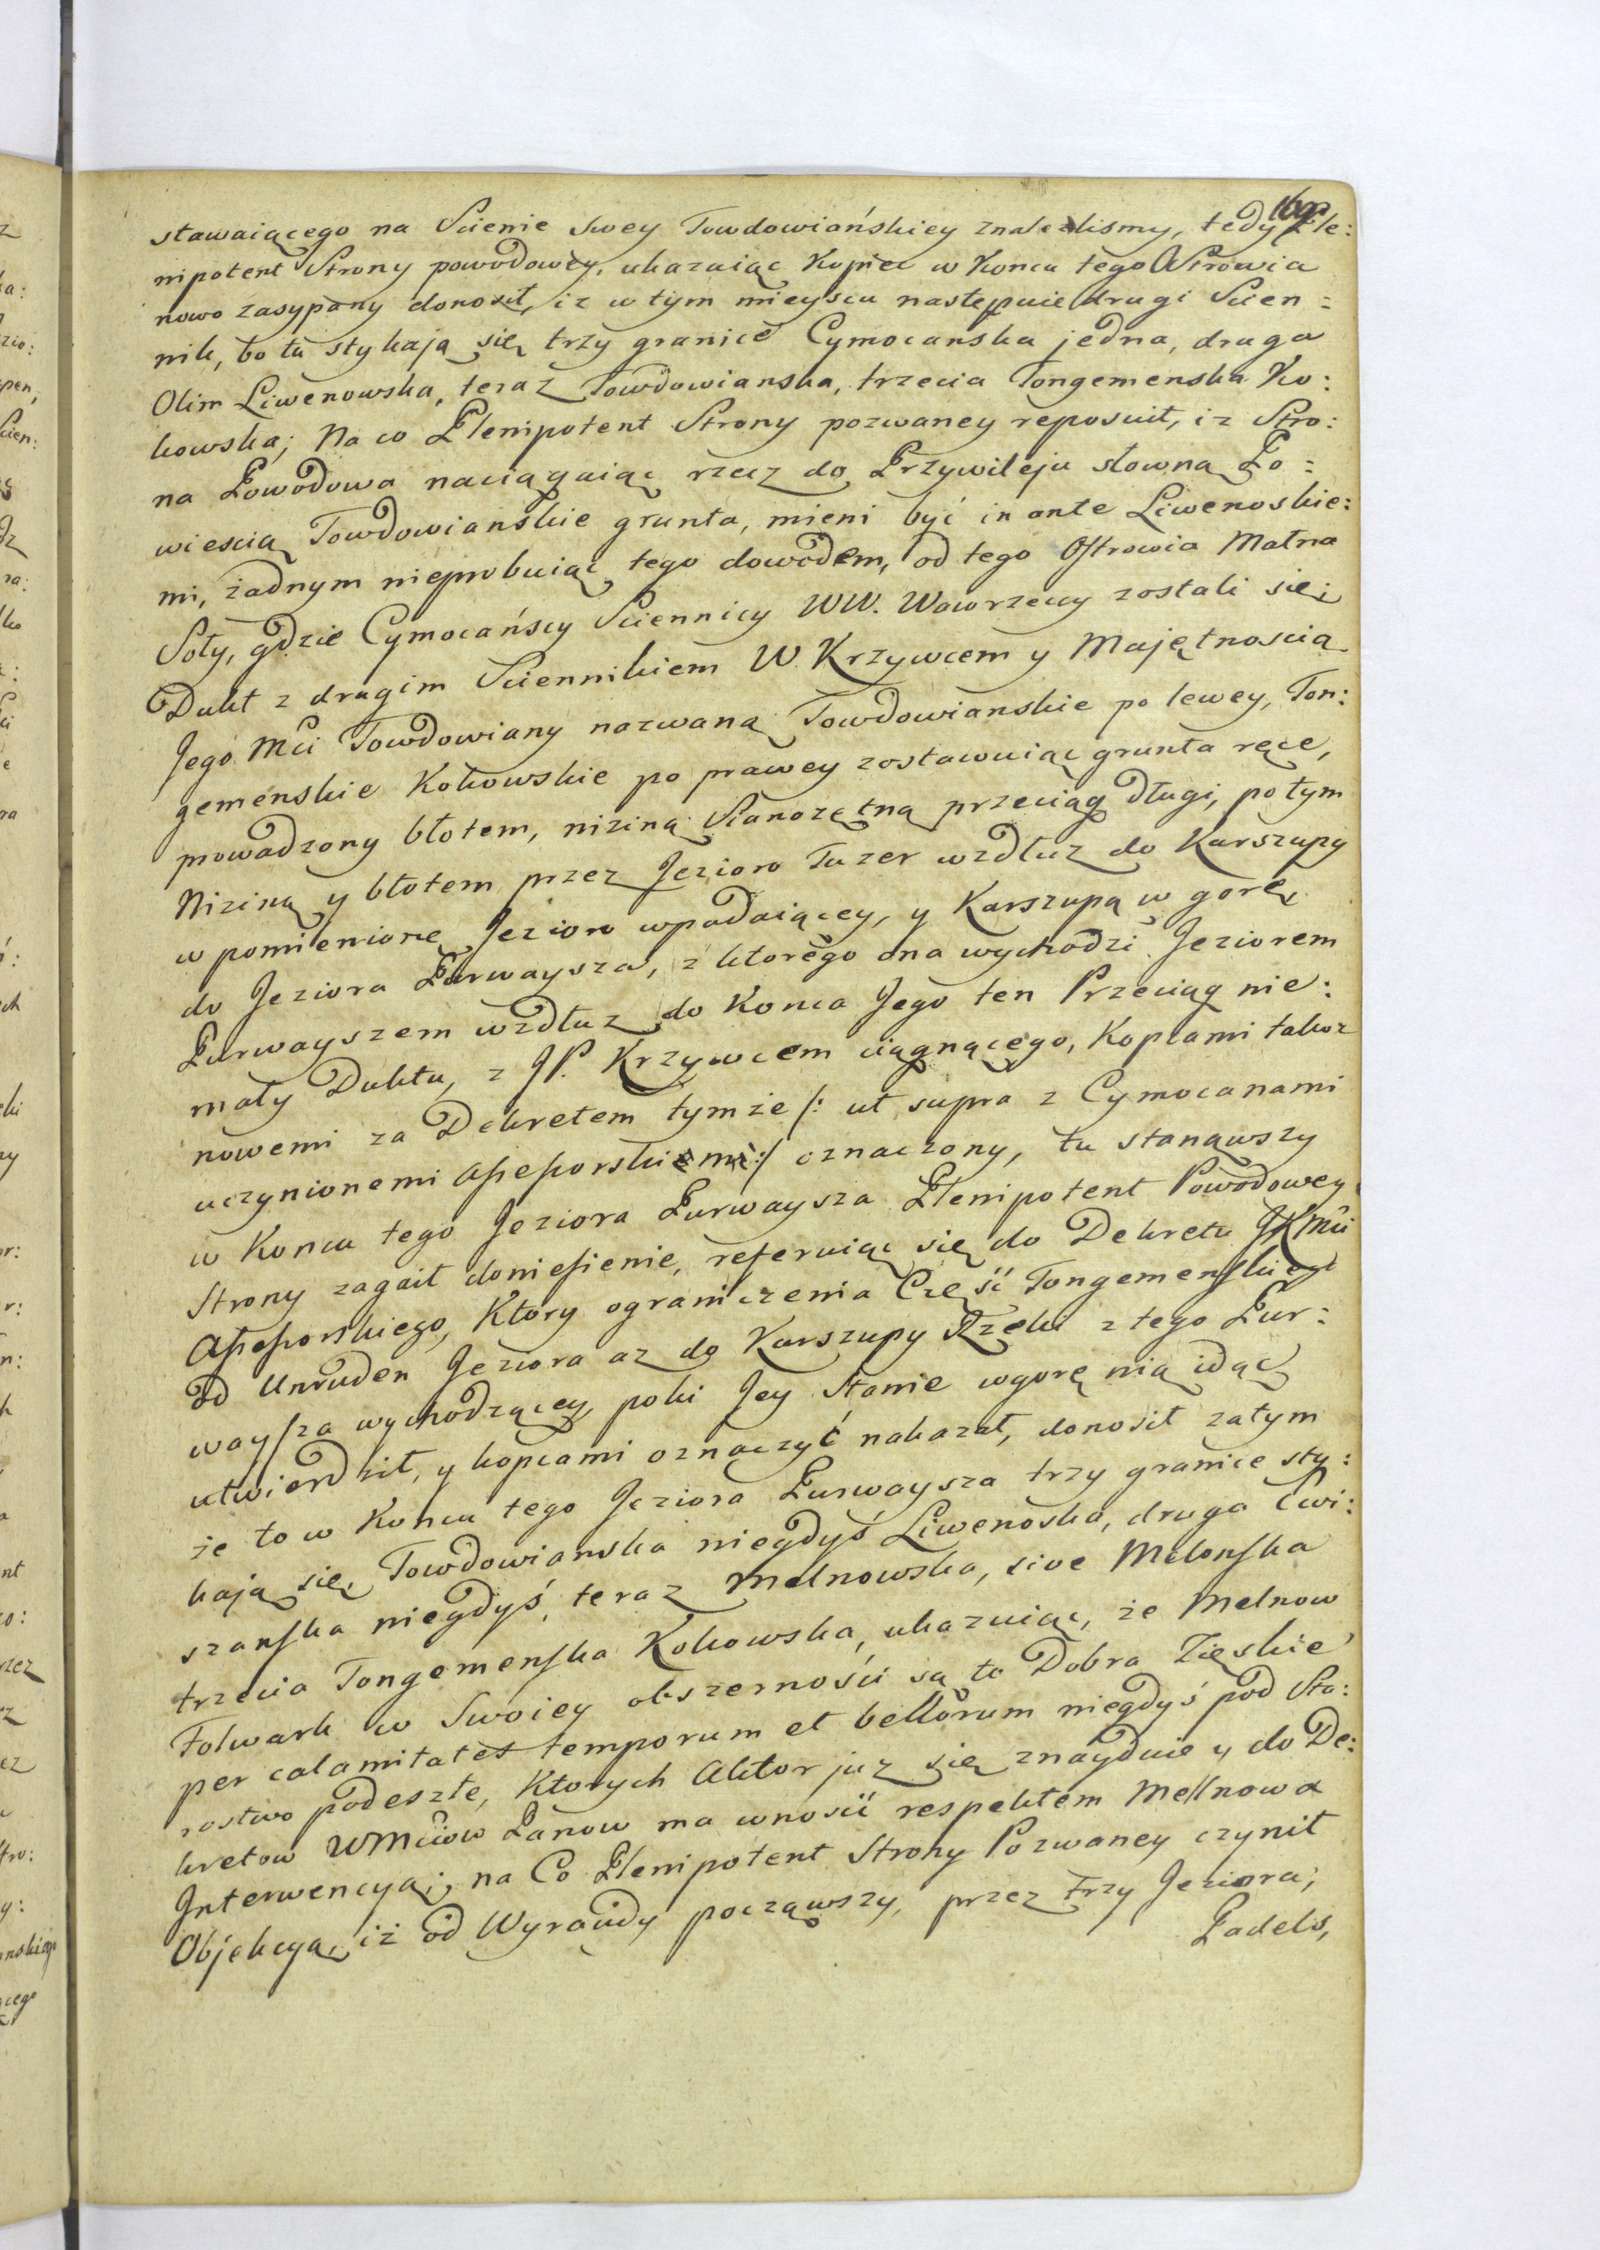 stawaiącego na Scienie swey Towdowiańskiey znalezlismy, tedy Ple:
nipotent Strony powodowey, ukazuiąc Kopiec w Koncu tego Ostrowia
nowo zasypany donosił, iz w tym mieyscu następuie drugi Scien=
nik, bo tu stykają się trzy granice Cymocanska jedna, druga
Olim Liwenowska, teraz Towdowianska, trzecia Tongemenska Ko:
kowska; Na co Plenipotent Strony pozwaney reposuit, iz Stro:
na Powodowa naciągaiąc rzecz do Przywileju słowną Po=
wiescią Towdowianskie grunta, mieni być in ante Liwenoskie:
mi, żadnym nieprobuiąc tego dowodem, od tego Ostrowia Małna
Soły, gdzie Cymocańscy Sciennicy WW. Wawrzeccy zostali się;
Dukt z drugim Sciennikiem W. Krzywcem y Majętnoscią
Jego Mci Towdowiany nazwaną Towdowianskie po lewey, Ton:
gemenskie Kokowskie po prawey zostawuiąc grunta ręce,
prowadzony błotem, niziną Sianozętną przeciąg długi, potym
Niziną y błotem przez Jezioro Tuzer wzdłuz do Karszupy
w pomienione Jezioro wpadaiącey, y Karszupą w gorę,
do Jeziora Purwaysza, z ktorego ona wychodzi Jeziorem
Purwayszem wzdłuz do Konca Jego ten Przeciąg nie:
mały Duktu, z JP. Krzywcem ciągnącego, Kopcami takoz
nowemi za Dekretem tymże /: ut supra z Cymocanami
uczynionemi Assessorskiemi :/ oznaczony, tu stanąwszy
w Koncu tego Jeziora Purwaysza Plenipotent Powodowey
Strony zagaił doniesienie, referuiąc się do Dekretu JKMci
Assessorskiego, Ktory ograniczenia Część Tongemenskiego
od Unruden Jeziora az do Karszupy Rzeki z tego Pur:
waysza wychodzącey, poki Jey Stanie wgorę nią idąc
utwierdził, y kopcami oznaczyć nakazał, donosił zatym
że to w Koncu tego Jeziora Purwaysza trzy granice sty:
kają się, Towdowianska niegdyś Liwenoska, druga Cwi:
szanska niegdyś, teraz Melnowska, sive Melonska
trzecia Tongemenska Kokowska, ukazuiąc, że Melnow
Folwark w Swoiey obszerności są to Dobra Zięskie
per calamitates temporum et bellorum niegdyś pod Sta:
rostwo podeszłe, Ktorych Aktor juz się znayduie y do De:
kretow WMciow Panow ma wnosić respektem Mellnowa
Interwencyą; na Co Plenipotent Strony Pozwaney czynił
Objekcyą, iż od Wyraudy począwszy, przez trzy Jeziora,
Padels,